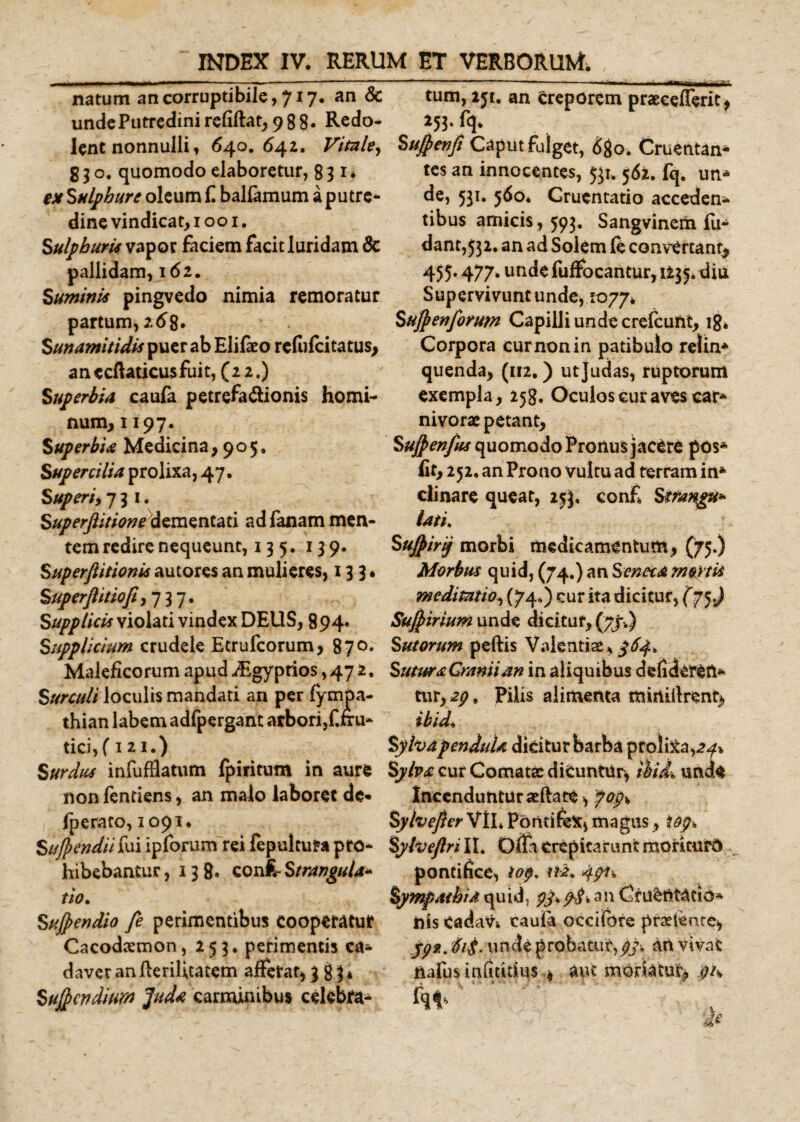 INDEX IV. RERUM ET VERBORUM.
natum an corruptibile, 717. an &
unde Putredini resistat, 988. Redo-
lent nonnulli, 640. 642. Vitale,
830. quomodo elaboretur, 831.
ex Sulphure oleum s. balsamum à putre-
dine vindicat, 1001.
Sulphuris vapor faciem facit luridam &
pallidam, 162.
Suminis pingvedo nimia remoratur
partum, 268.
Sunamitidis puer ab Elisæo resuscitatus,
an ecstaticus fuit, (22.)
Superbia causa petrefactionis homi-
num, 1197.
Superbiæ Medicina, 905.
Supercilia prolixa, 47.
Superi, 731.
Superstitione dementati ad sanam men-
tem redire nequeunt, 135. 139.
Superstitionis autores an mulieres, 133.
Superstitiosi, 737.
Suppliciis violati vindex DEUS, 894.
Supplicium crudele Etruscorum, 870.
Maleficorum apud Ægyptios, 472.
Surculi loculis mandati an per sympa-
thian labem adspergant arbori, s. fru-
tici, (121.)
Surdus insufflatum spiritum in aure
non sentiens, an malo laboret de-
sperato, 1091.
Suspendii sui ipsorum rei sepultura pro-
hibebantur, 138. conf. Strangula-
tio.
Suspendio se perimentibus cooperatur
Cacodæmon, 253. perimentis ca-
daver an sterilitatem afferat, 383.
Suspendium Judæ carminibus celebra-
tum, 251. an creporem præcesserit,
253. sq.
Suspensi Caput fulget, 680. Cruentan-
tes an innocentes, 531. 562. sq. un-
de, 531. 560. Cruentatio acceden-
tibus amicis, 593. Sangvinem su-
dant, 532. an ad Solem se convertant,
455. 477. unde suffocantur, 1235. diu
Supervivunt unde, 1077.
Suspensorum Capilli unde crescunt, 18.
Corpora cur non in patibulo relin-
quenda, (112.) ut Judas, ruptorum
exempla, 258. Oculos cur aves car-
nivoræ petant,
Suspensus quomodo Pronus jacere pos-
sit, 252. an Prono vultu ad terram in-
clinare queat, 253. conf. Strangu-
lati.
Suspirij morbi medicamentum, (75.)
Morbus quid, (74.) an Senecæ mortis
meditatio, (74.) cur ita dicitur, (75.)
Suspirium unde dicitur, (75.)
Sutorum pestis Valentiæ, 364.
Suturæ Cranii an in aliquibus desideren-
tur, 29. Pilis alimenta ministrent,
ibid.
Sylva pendula dicitur barba prolixa, 24.
Sylvæ cur Comatæ dicuntur, ibid. unde
Incenduntur æstate, 709.
Sylvester VII. Pontifex, magus, 109.
Sylvestri II. Ossa crepitarunt morituro
pontifice, 109. 112. 491.
Sympathia quid, 93. 98. an Cruentatio-
nis cadav. causa occisore præsente,
592. 618. unde probatur, 93. an vivat
nasus insititius, aut moriatur, 91.
sqq.
de